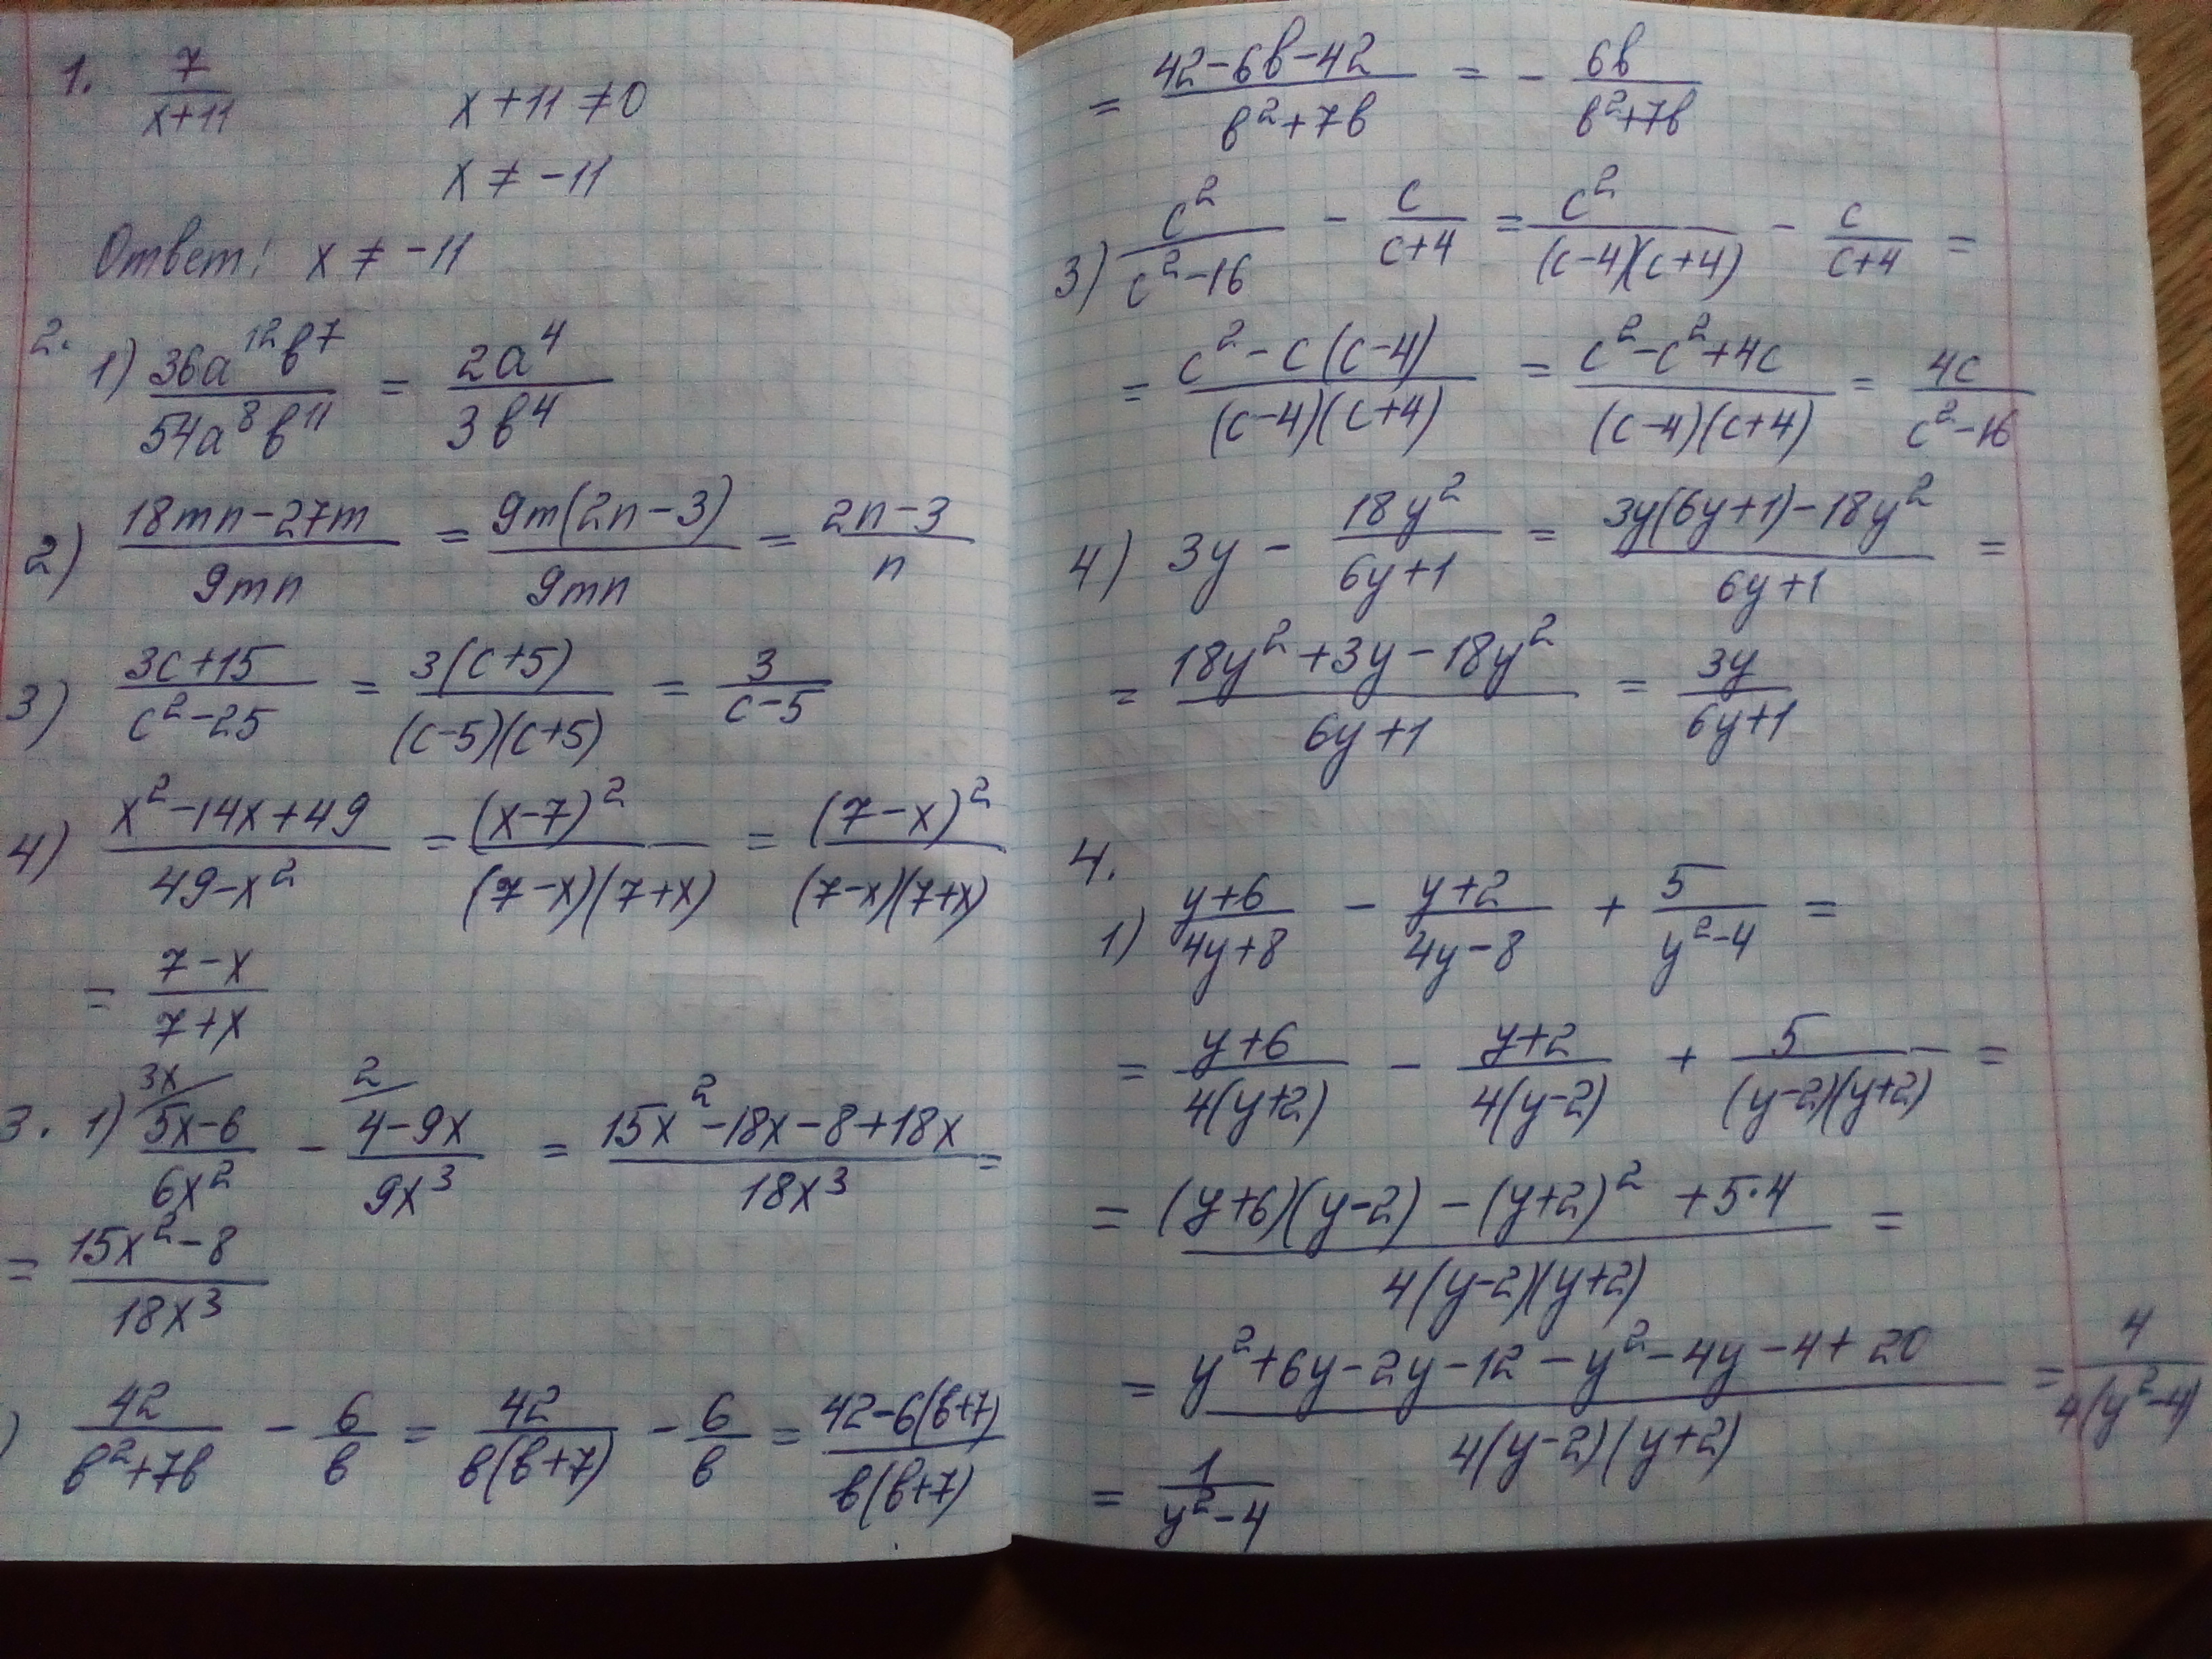 1. 7/(x+11)    x+11≠0
x ≠ -11
Ответ: x ≠ -11
2. 1) 36a¹²b⁷/54a⁸b¹¹ = 2a⁴/3b⁴
2) (18mn-27m)/9mn = 9m(2n-3)/9mn = (2n-3)/n
3) (3c+15)/(c²-25) = 3(c+5)/((c-5)(c+5)) = 3/(c-5)
4) (x²-14x+49)/(49-x²) = (x-7)²/((7-x)(7+x)) = (7-x)²/((7-x)(7+x))
= (7-x)/(7+x)
3. 1) 3x/ (5x-6)/6x² - 2/ (4-9x)/9x³ = (15x²-18x-8+18x)/18x³ =
= (15x²-8)/18x³
) 42/(b²+7b) - 6/b = 42/(b(b+7)) - 6/b = (42-6(b+7))/(b(b+7))
= (42-6b-42)/(b²+7b) = - 6b/(b²+7b)
3) c²/(c²-16) - c/(c+4) = c²/((c-4)(c+4)) - c/(c+4) =
= (c²-c(c-4))/((c-4)(c+4)) = (c²-c²+4c)/((c-4)(c+4)) = 4c/(c²-16)
4) 3y - 18y²/(6y+1) = (3y(6y+1)-18y²)/(6y+1) =
= (18y²+3y-18y²)/(6y+1) = 3y/(6y+1)
4.
1) (y+6)/(4y+8) - (y+2)/(4y-8) + 5/(y²-4) =
= (y+6)/(4(y+2)) - (y+2)/(4(y-2)) + 5/((y-2)(y+2)) =
= ((y+6)(y-2)-(y+2)²+5·4)/(4(y-2)(y+2)) =
= (y²+6y-2y-12-y²-4y-4+20)/(4(y-2)(y+2)) = 4/(4(y²-4))
= 1/(y²-4)